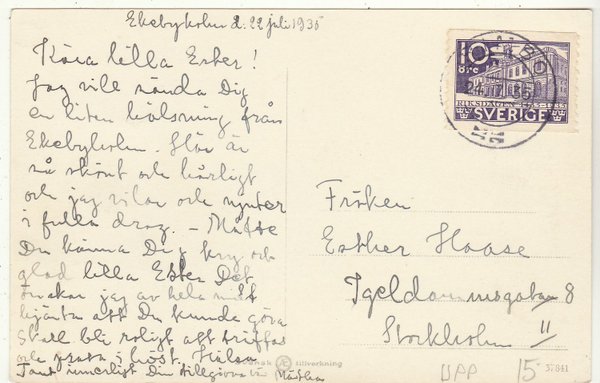 Ekebyholm d. 22 juli 1935
Kära lilla Ester!
Jag vill sända Dig
en liten hälsning från
Ekebyholm. Här är
så skönt och härligt
och jag vilar och njuter
i fulla drag. – Måtte
Du känna Dig kry och
glad lilla Ester. Det
önskar jag av hela mitt
hjärta att Du kunde göra
Skall bli roligt att träffas
och prata i höst. Hälsa
Tant innerligt Din tillgivna
10
ÖRE
RIKSDAGEN 1435-1935
SVERIGE
24 7 35
Fröken
Esther Haase
Igeldammsgatan 8
Stockholm
tillverkning
37841
UPP
15